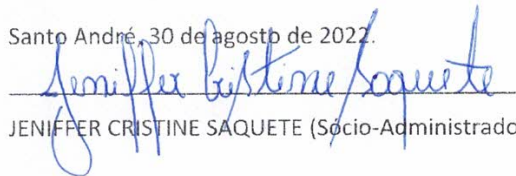 Santo André, 30 de agosto de 2022.
Jeniffer Cristine Saquete
JENIFFER CRISTINE SAQUETE (Sócio-Administrado